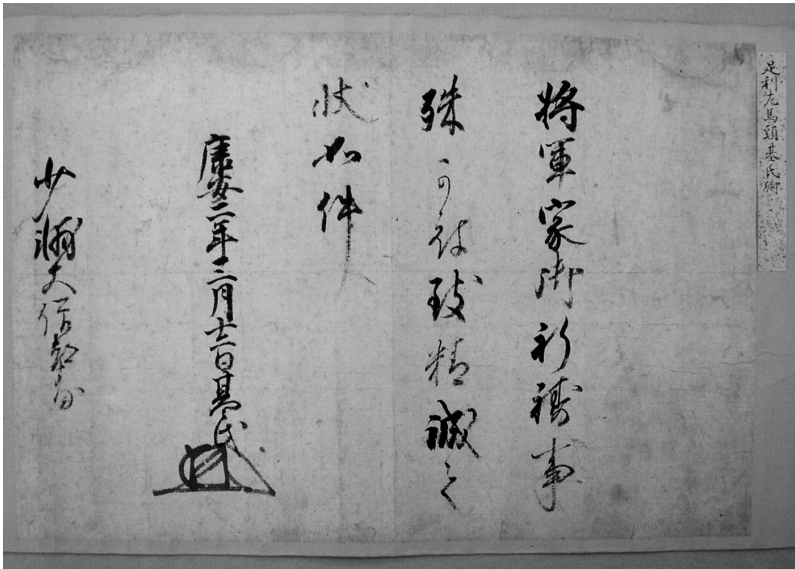 足利左馬頭基氏卿
將軍家御祈祷事
殊可被致精誠之
状如件
康安二年 月 日基氏
少輔大僧都